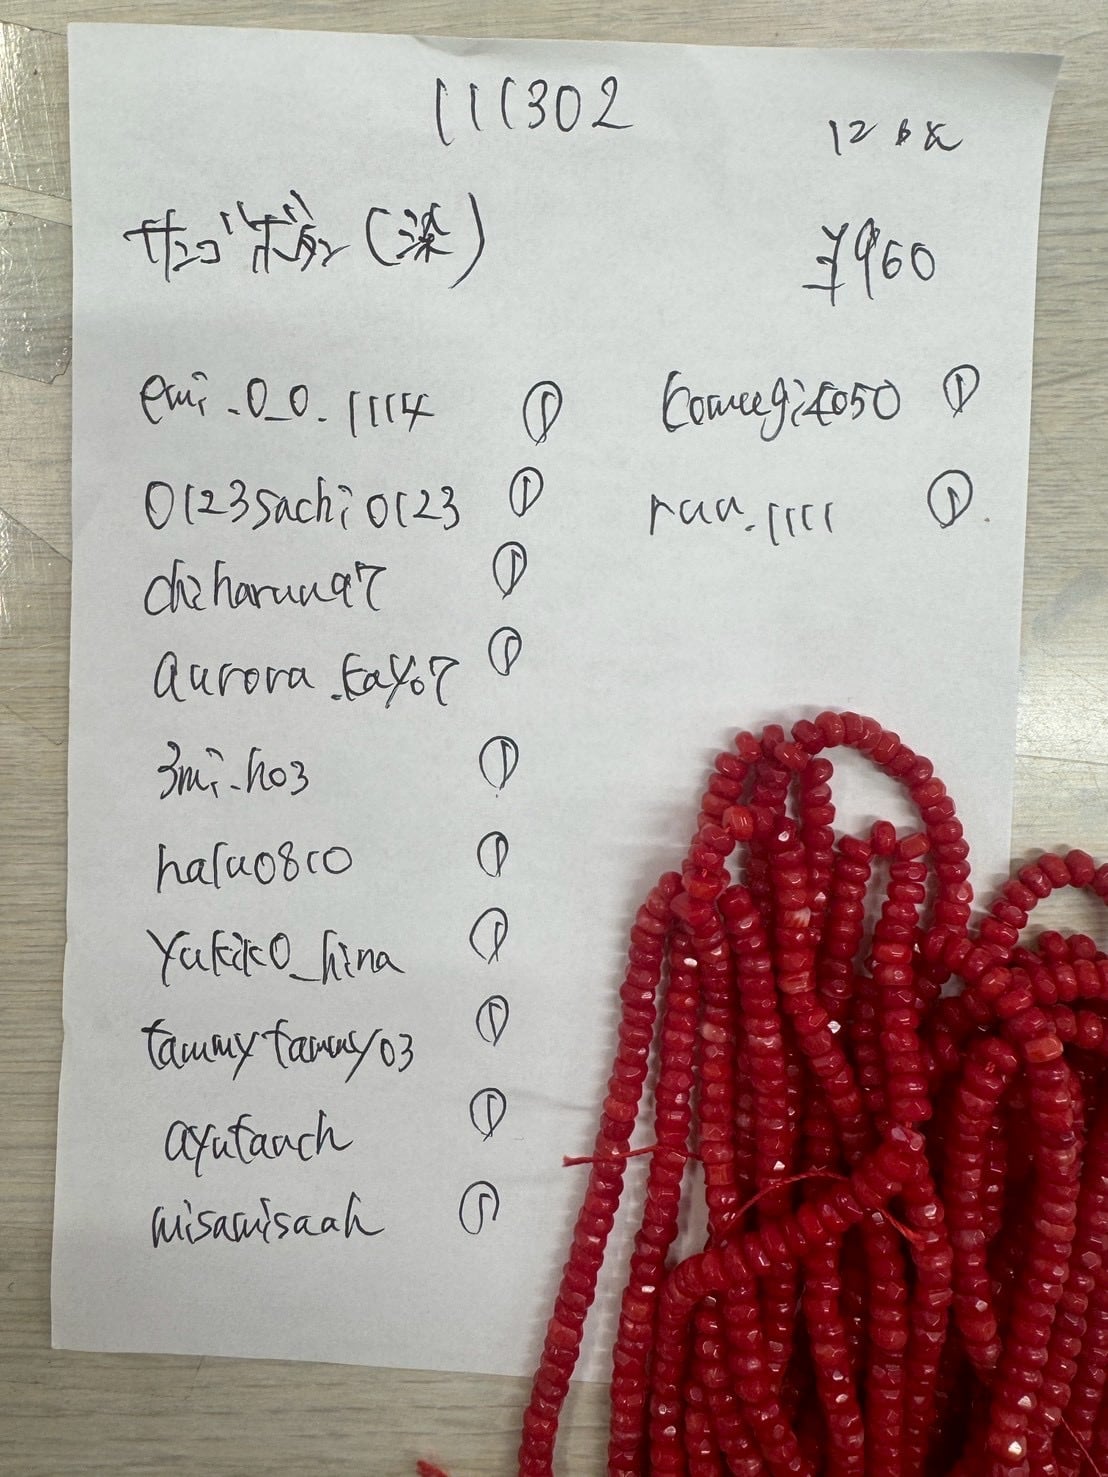 111302
サンゴボタン(染)
¥960
emi._0_0.1114 ①
0123sachi0123 ①
chiharuu97 ①
aurora.kay07 ①
3mi.ho3 ①
halu0810 ①
yukiko_hina ①
tammytammy03 ①
ayutanch ①
misamisaah ①
komegi4050 ①
ruu.1111 ①